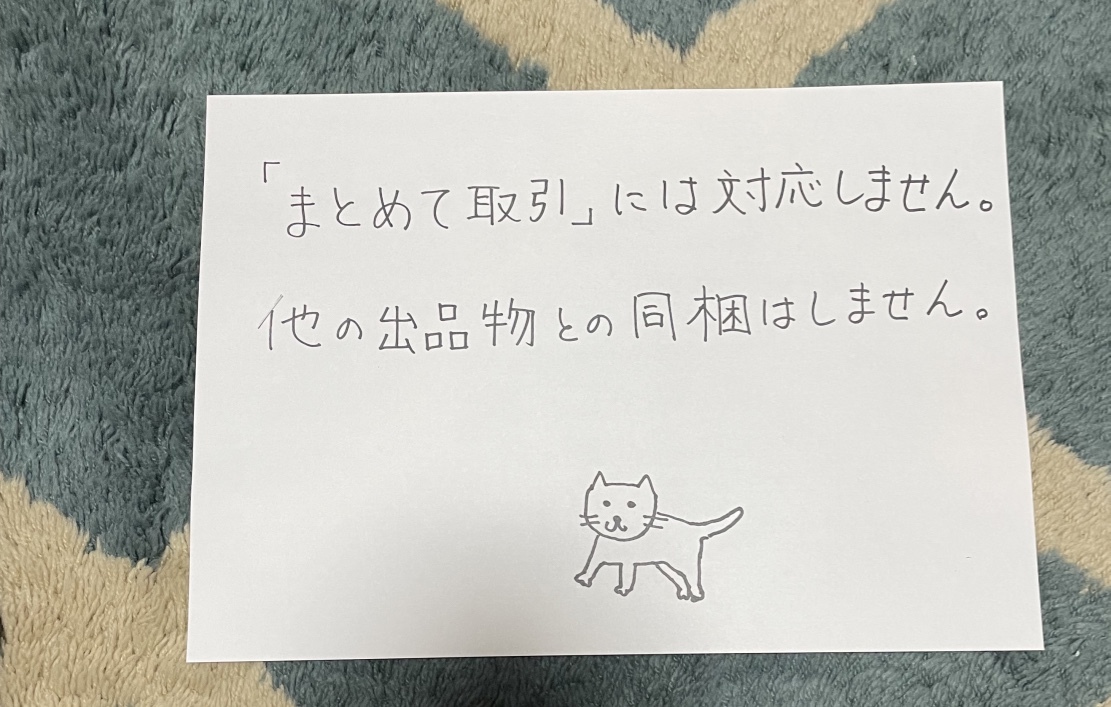 「まとめて取引」には対応しません。
他の出品物との同梱はしません。